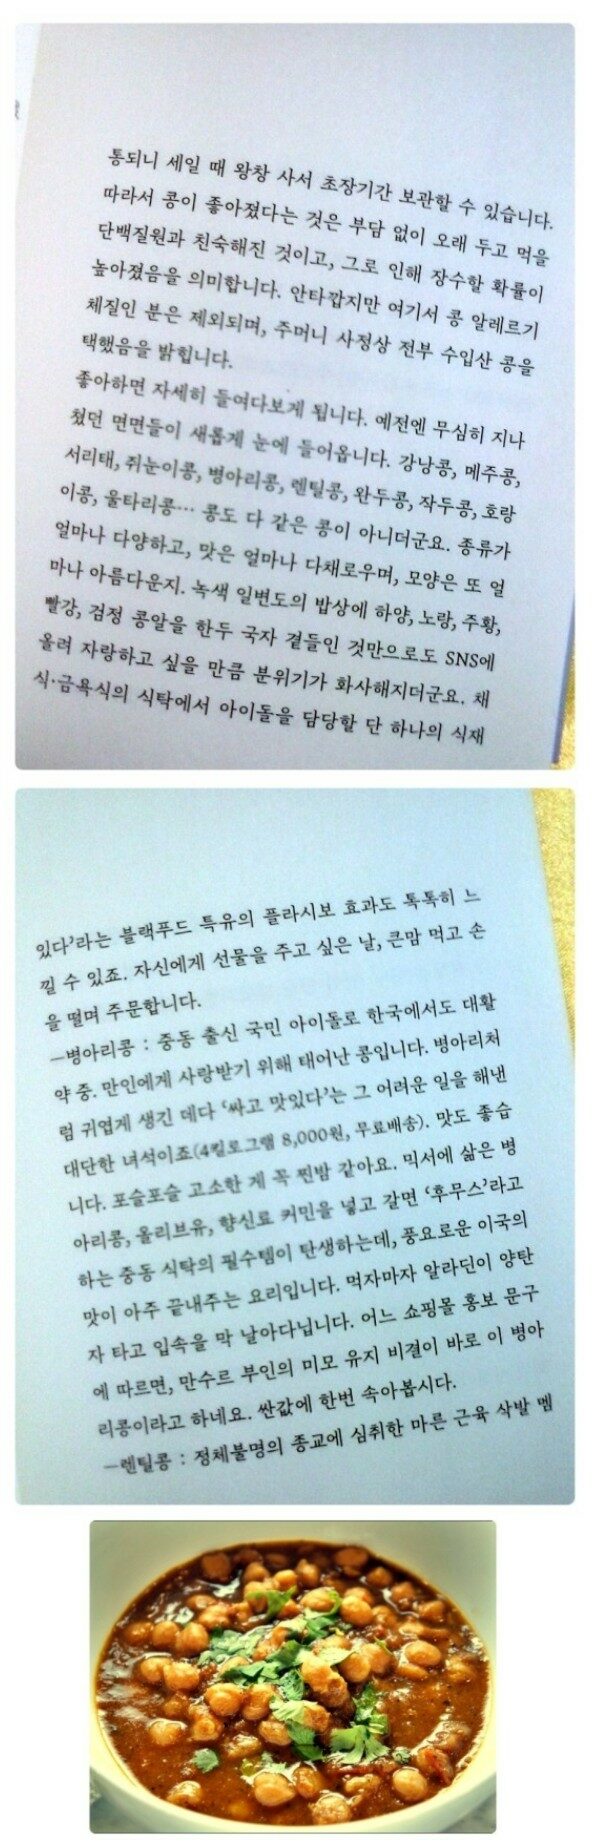 통되니 세일 때 왕창 사서 초장기간 보관할 수 있습니다.
따라서 콩이 좋아졌다는 것은 부담 없이 오래 두고 먹을
단백질원과 친숙해진 것이고, 그로 인해 장수할 확률이
높아졌음을 의미합니다. 안타깝지만 여기서 콩 알레르기
체질인 분은 제외되며, 주머니 사정상 전부 수입산 콩을
택했음을 밝힙니다.
좋아하면 자세히 들여다보게 됩니다. 예전엔 무심히 지나
쳤던 면면들이 새롭게 눈에 들어옵니다. 강낭콩, 메주콩,
서리태, 쥐눈이콩, 병아리콩, 렌틸콩, 완두콩, 작두콩, 호랑
이콩, 울타리콩… 콩도 다 같은 콩이 아니더군요. 종류가
얼마나 다양하고, 맛은 얼마나 다채로우며, 모양은 또 얼
마나 아름다운지. 녹색 일변도의 밥상에 하양, 노랑, 주황,
빨강, 검정 콩알을 한두 국자 곁들인 것만으로도 SNS에
올려 자랑하고 싶을 만큼 분위기가 화사해지더군요. 채
식·금욕식의 식탁에서 아이돌을 담당할 단 하나의 식재
있다’라는 블랙푸드 특유의 플라시보 효과도 톡톡히 느
낄 수 있죠. 자신에게 선물을 주고 싶은 날, 큰맘 먹고 손
을 떨며 주문합니다.
—병아리콩 : 중동 출신 국민 아이돌로 한국에서도 대활
약 중. 만인에게 사랑받기 위해 태어난 콩입니다. 병아리처
럼 귀엽게 생긴 데다 ‘싸고 맛있다’는 그 어려운 일을 해낸
대단한 녀석이죠(4킬로그램 8,000원, 무료배송). 맛도 좋습
니다. 포슬포슬 고소한 게 꼭 찐밤 같아요. 믹서에 삶은 병
아리콩, 올리브유, 향신료 커민을 넣고 갈면 ‘후무스’라고
하는 중동 식탁의 필수템이 탄생하는데, 풍요로운 이국의
맛이 아주 끝내주는 요리입니다. 먹자마자 알라딘이 양탄
자 타고 입속을 막 날아다닙니다. 어느 쇼핑몰 홍보 문구
에 따르면, 만수르 부인의 미모 유지 비결이 바로 이 병아
리콩이라고 하네요. 싼값에 한번 속아봅시다.
—렌틸콩 : 정체불명의 종교에 심취한 마른 근육 삭발 멤